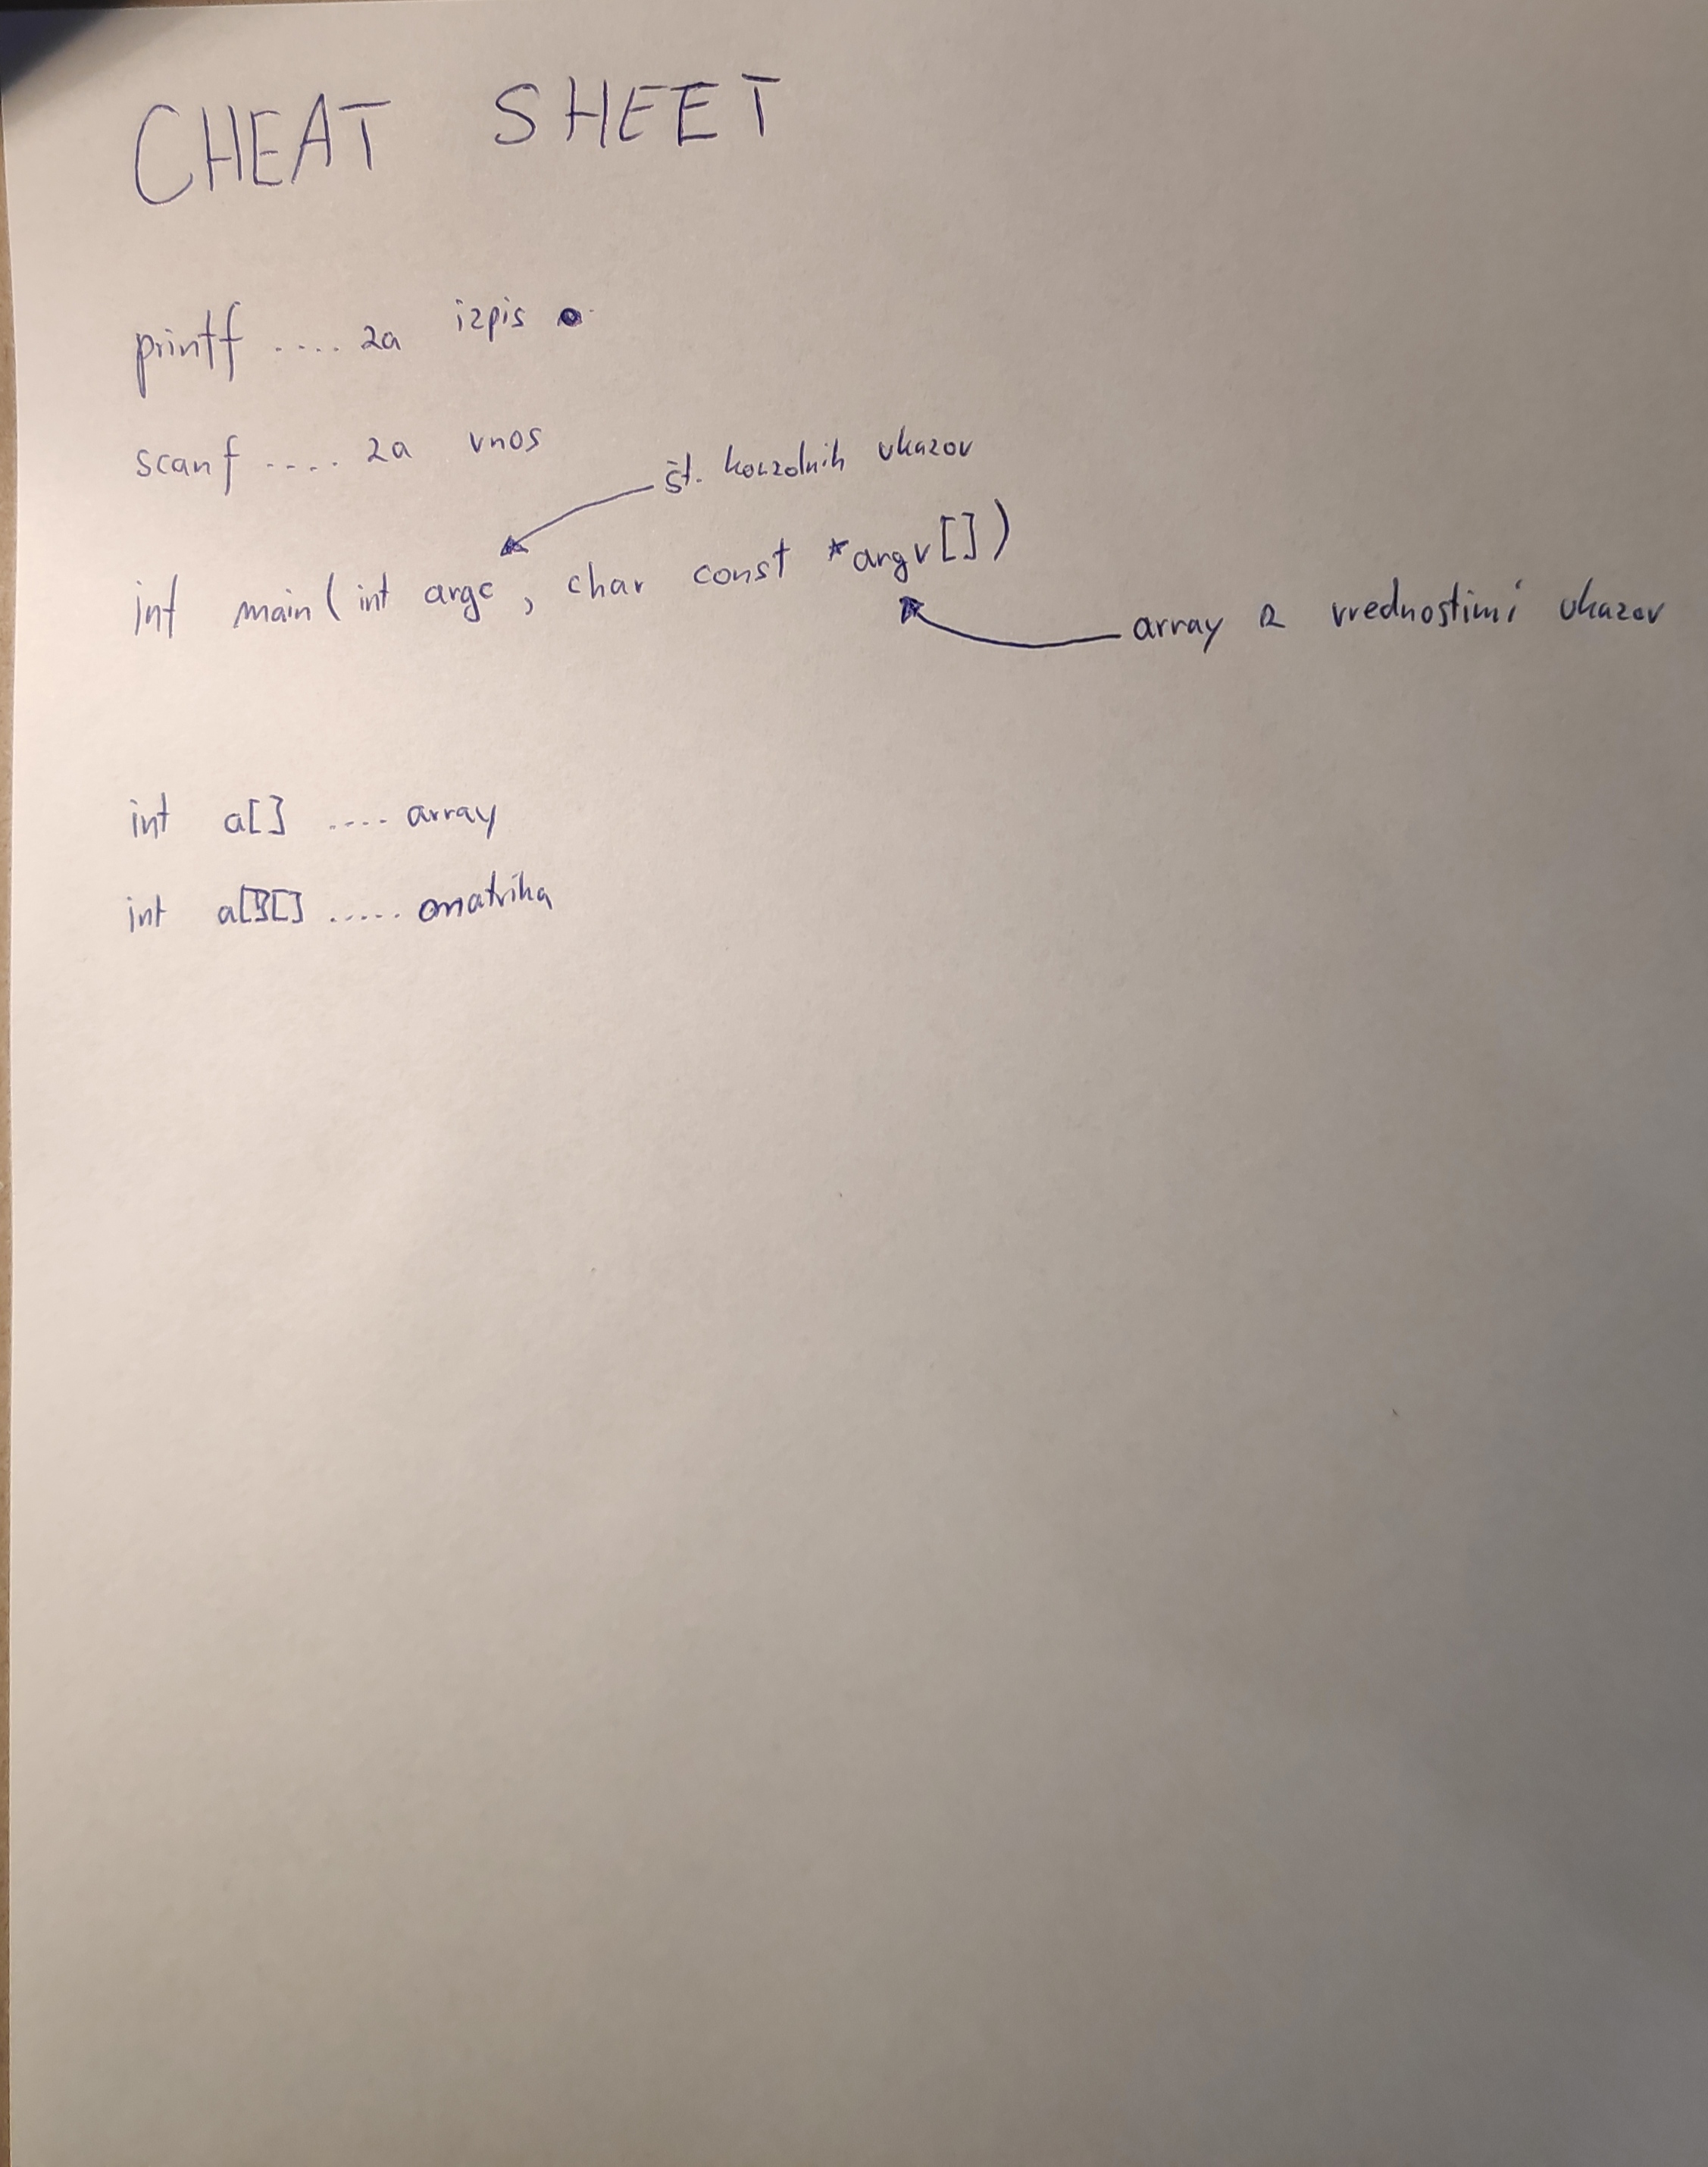 CHEAT SHEET
printf .... za izpis
scanf .... za vnos
št. konzolnih ukazov
int main(int argc, char const *argv[])
array z vrednostimi ukazov
int a[] .... array
int a[][] ..... matrika